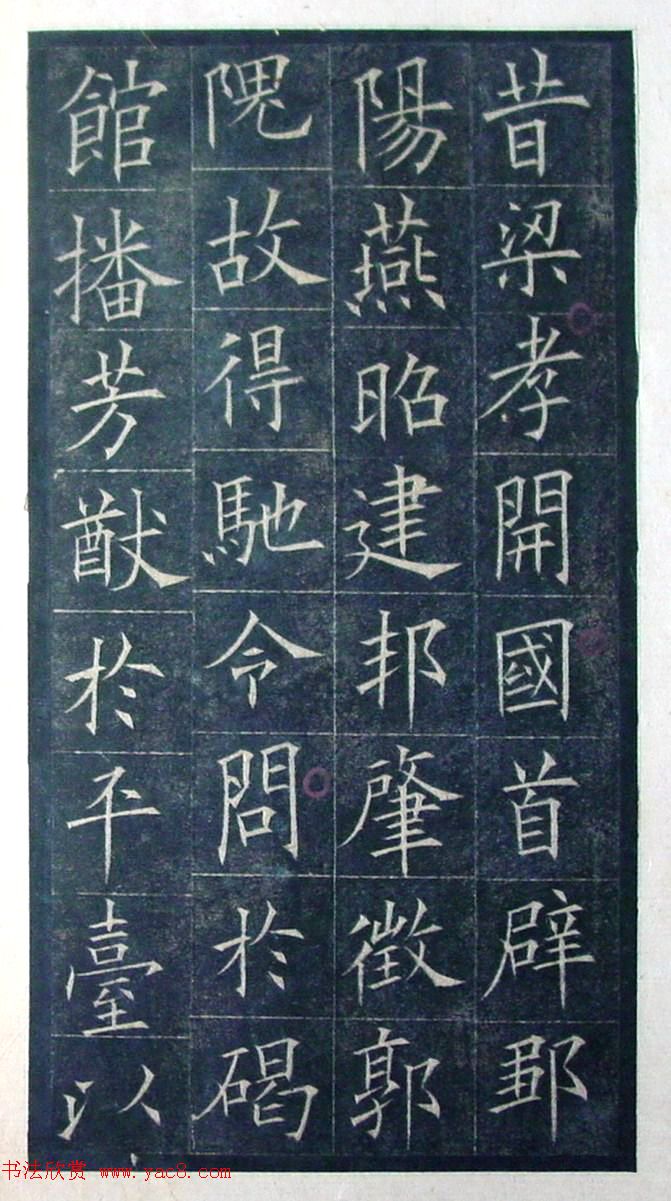 昔梁孝開國首辟鄒
陽燕昭建邦肈徵郭
隗故得馳令問於碣
館播芳猷於平臺以
书法欣赏 www.yac8.com